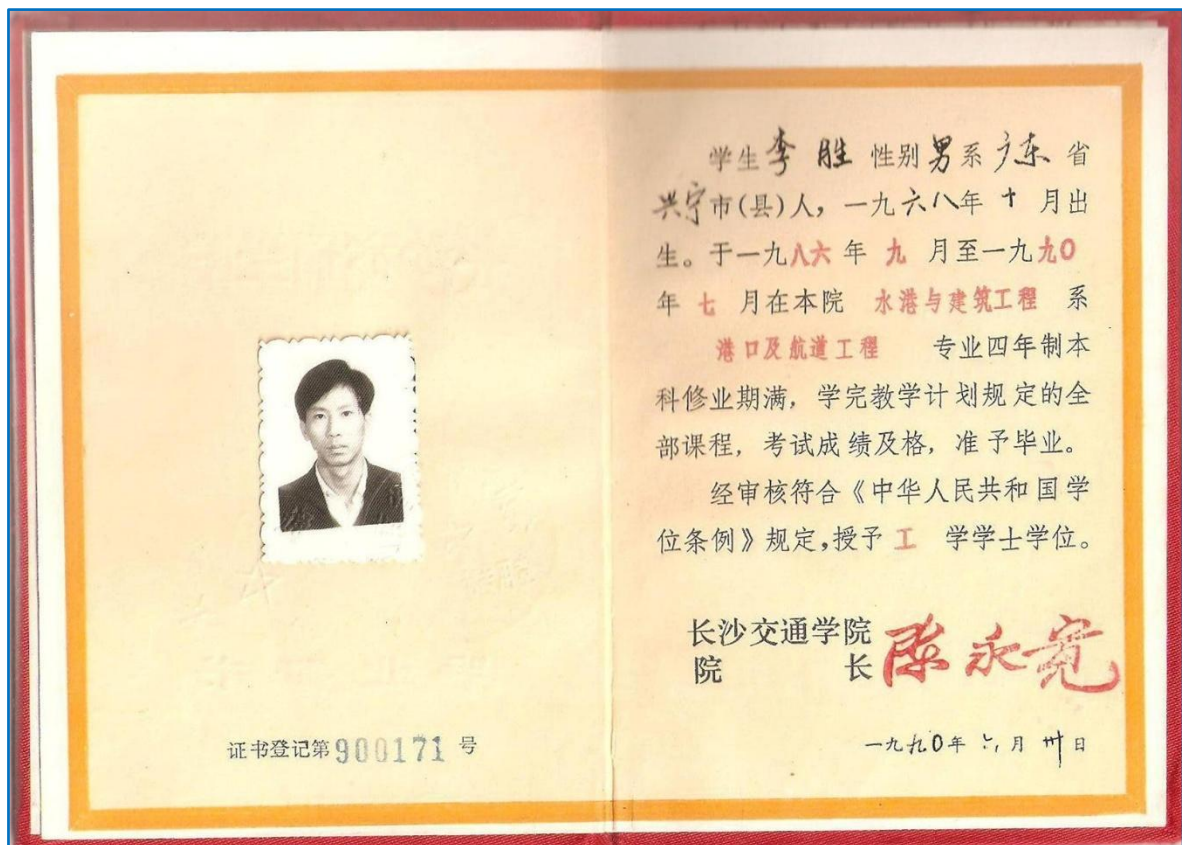 学生李 胜 性别男系广东省
兴宁市(县)人，一九六八年十月出
生。于一九八六年九月至一九九〇
年七月在本院 水港与建筑工程 系
港口及航道工程 专业四年制本
科修业期满，学完教学计划规定的全
部课程，考试成绩及格，准予毕业。
经审核符合《中华人民共和国学
位条例》规定，授予 工 学学士学位。
长沙交通学院
院 长 陈永宽
一九九〇年六月卅日
证书登记第900171号